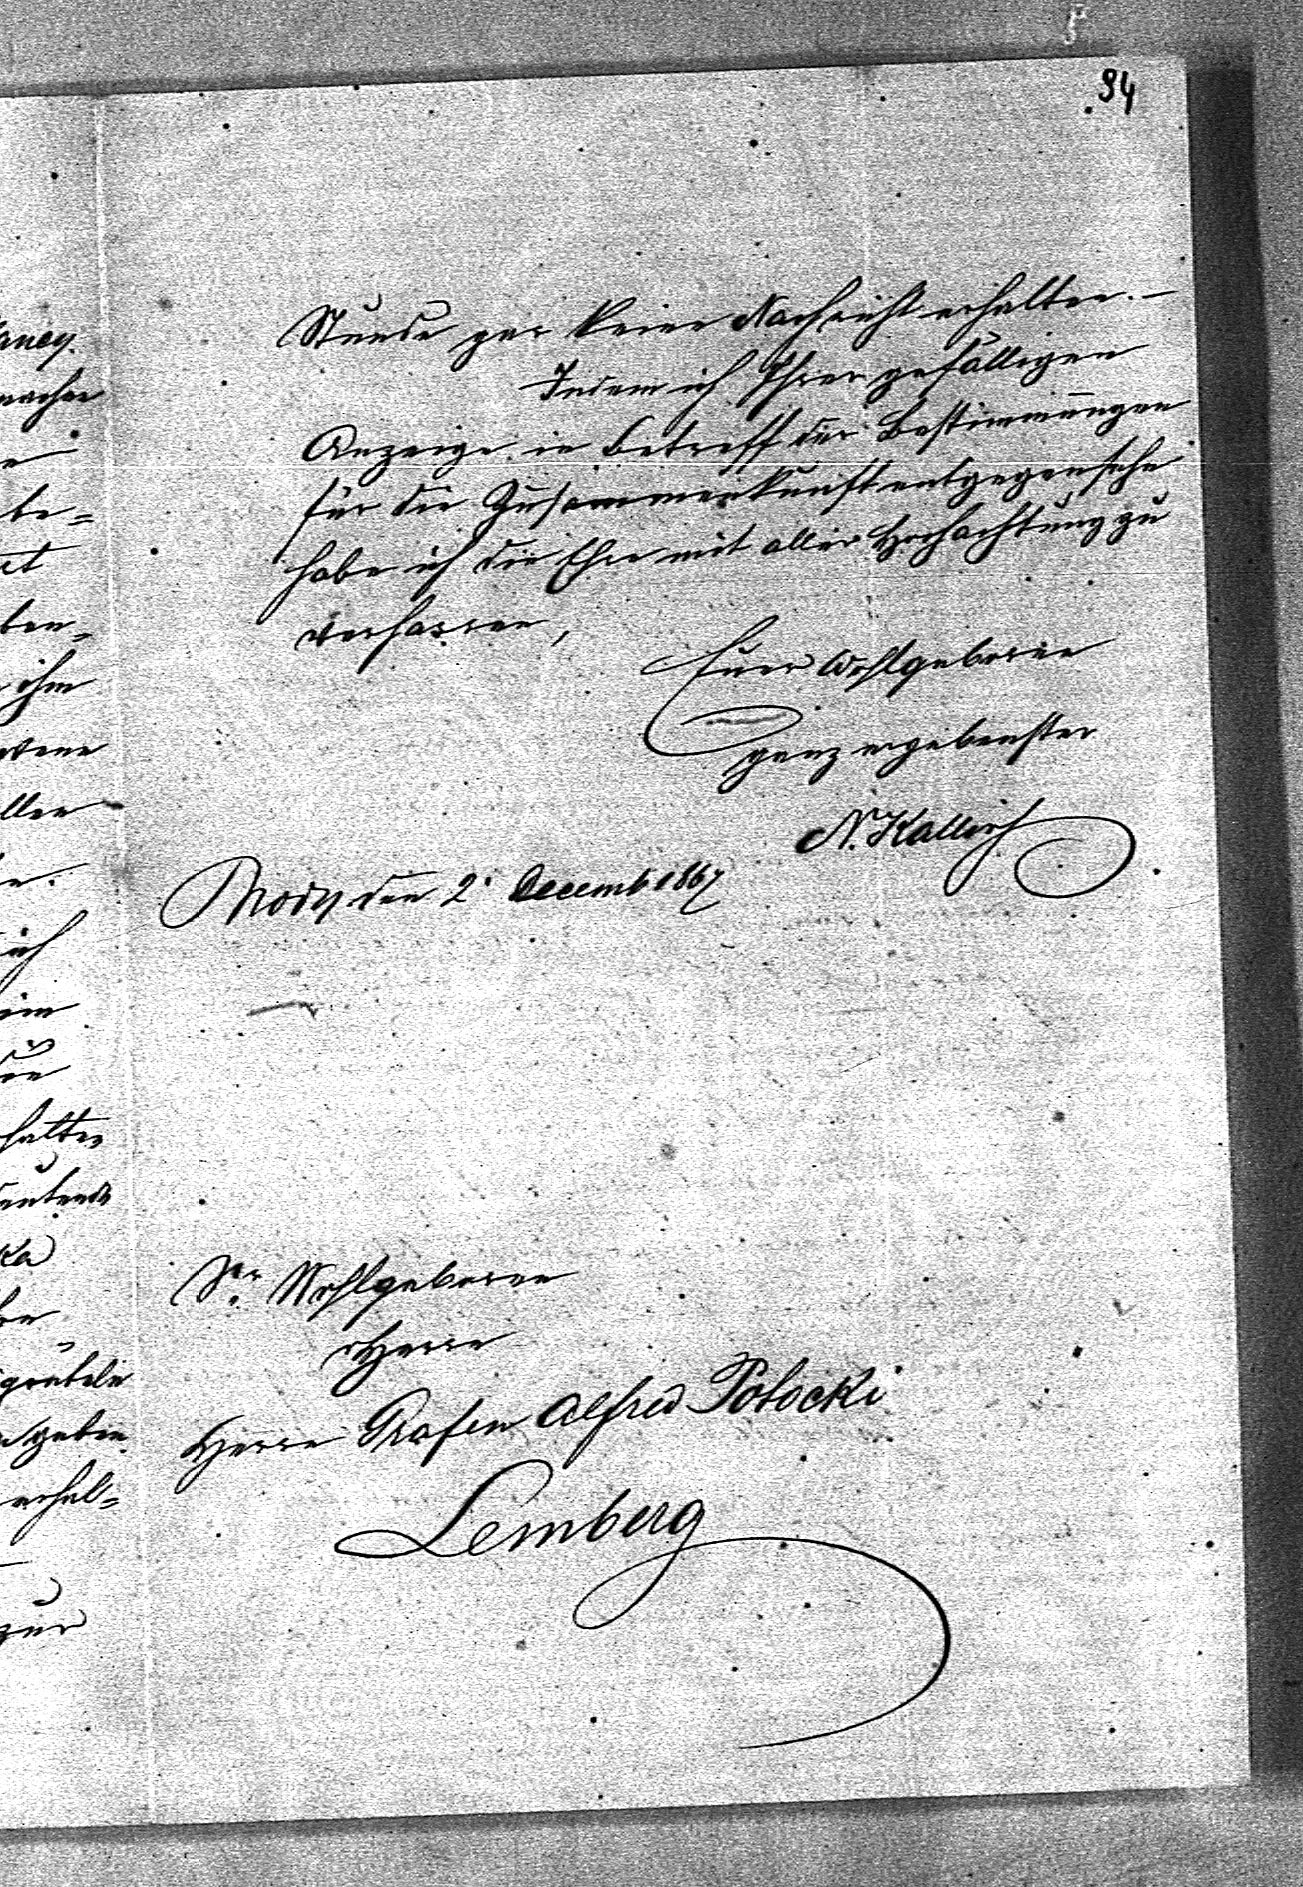 94
Stunde gar keine Nachricht erhalten. —
Indem ich Ihrer gefälligen
Anzeige in betreff der Bestimmungen
für die Zusammenkunft entgegensehe
habe ich die Ehre mit aller Hochachtung zu
verharren,
Euer Wohlgeboren
ganz ergebenster
N. Kallir
Brody den 2' Decemb 1867
Sr. Wohlgeboren
Herrn
Herrn Grafen Alfred Potocki
Lemberg
ihm
ich
halten
geben
erhal=
zur